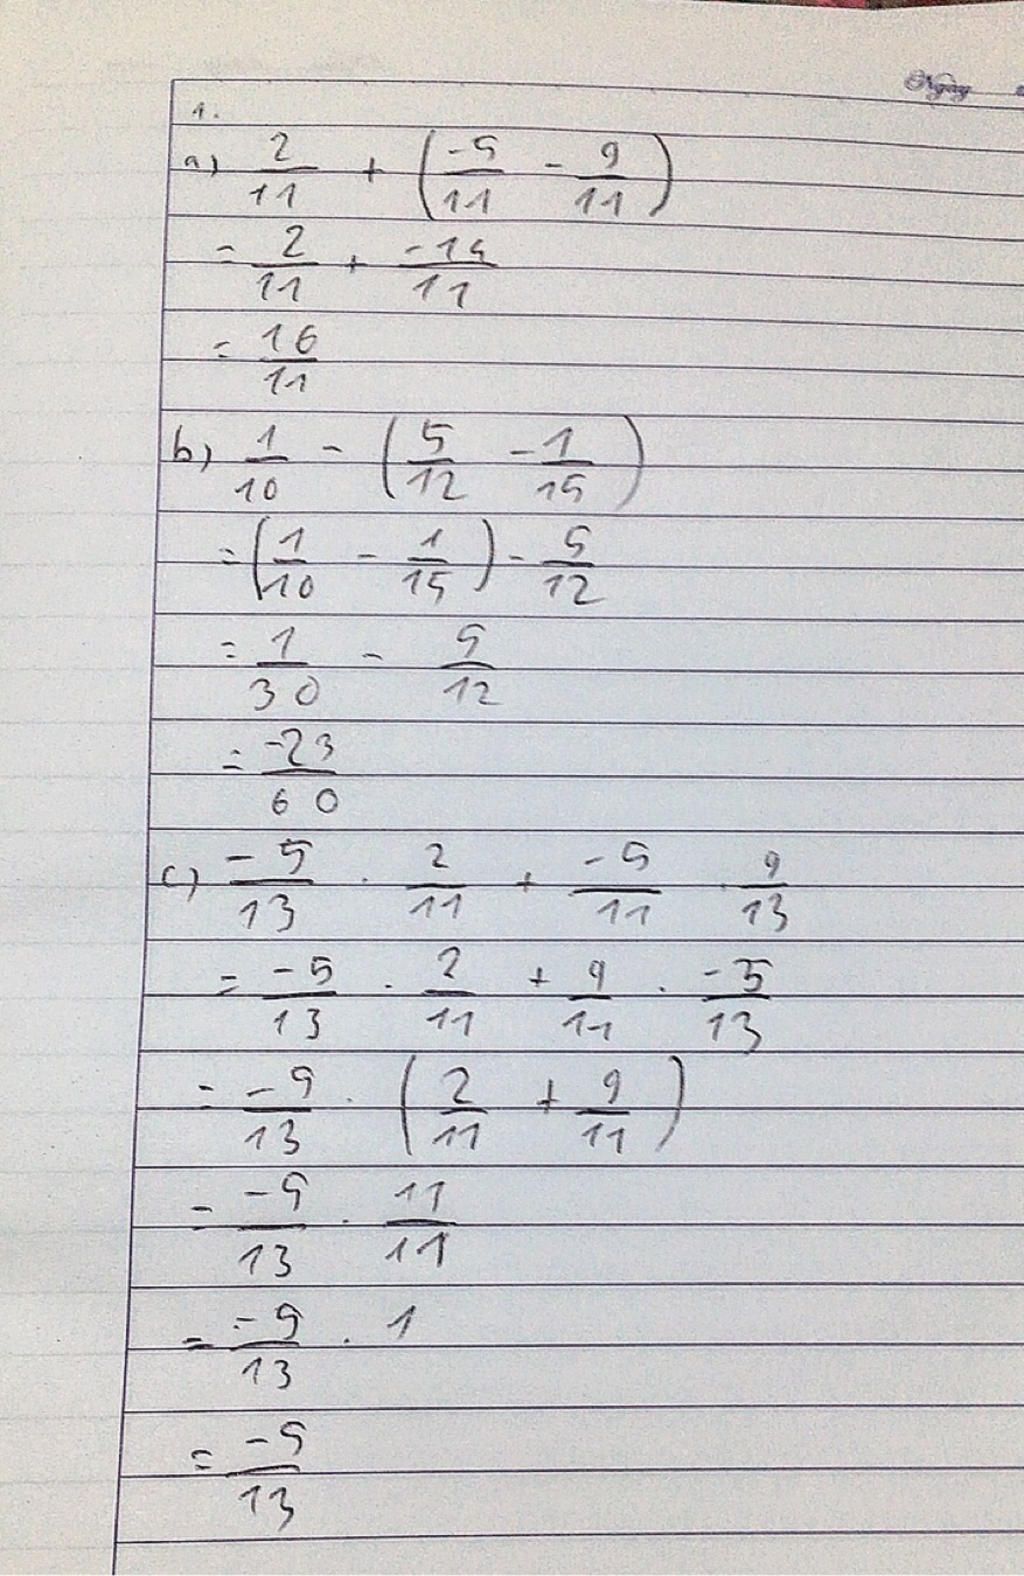 Ngày
1.
a) 2/11 + (-5/11 - 9/11)
= 2/11 + -14/11
= 16/11
b) 1/10 - (5/12 - 1/15)
= (1/10 - 1/15) - 5/12
= 1/30 - 5/12
= -23/60
c) -5/13 . 2/11 + -5/11 . 9/13
= -5/13 . 2/11 + 9/11 . -5/13
= -5/13 . (2/11 + 9/11)
= -5/13 . 11/11
= -5/13 . 1
= -5/13